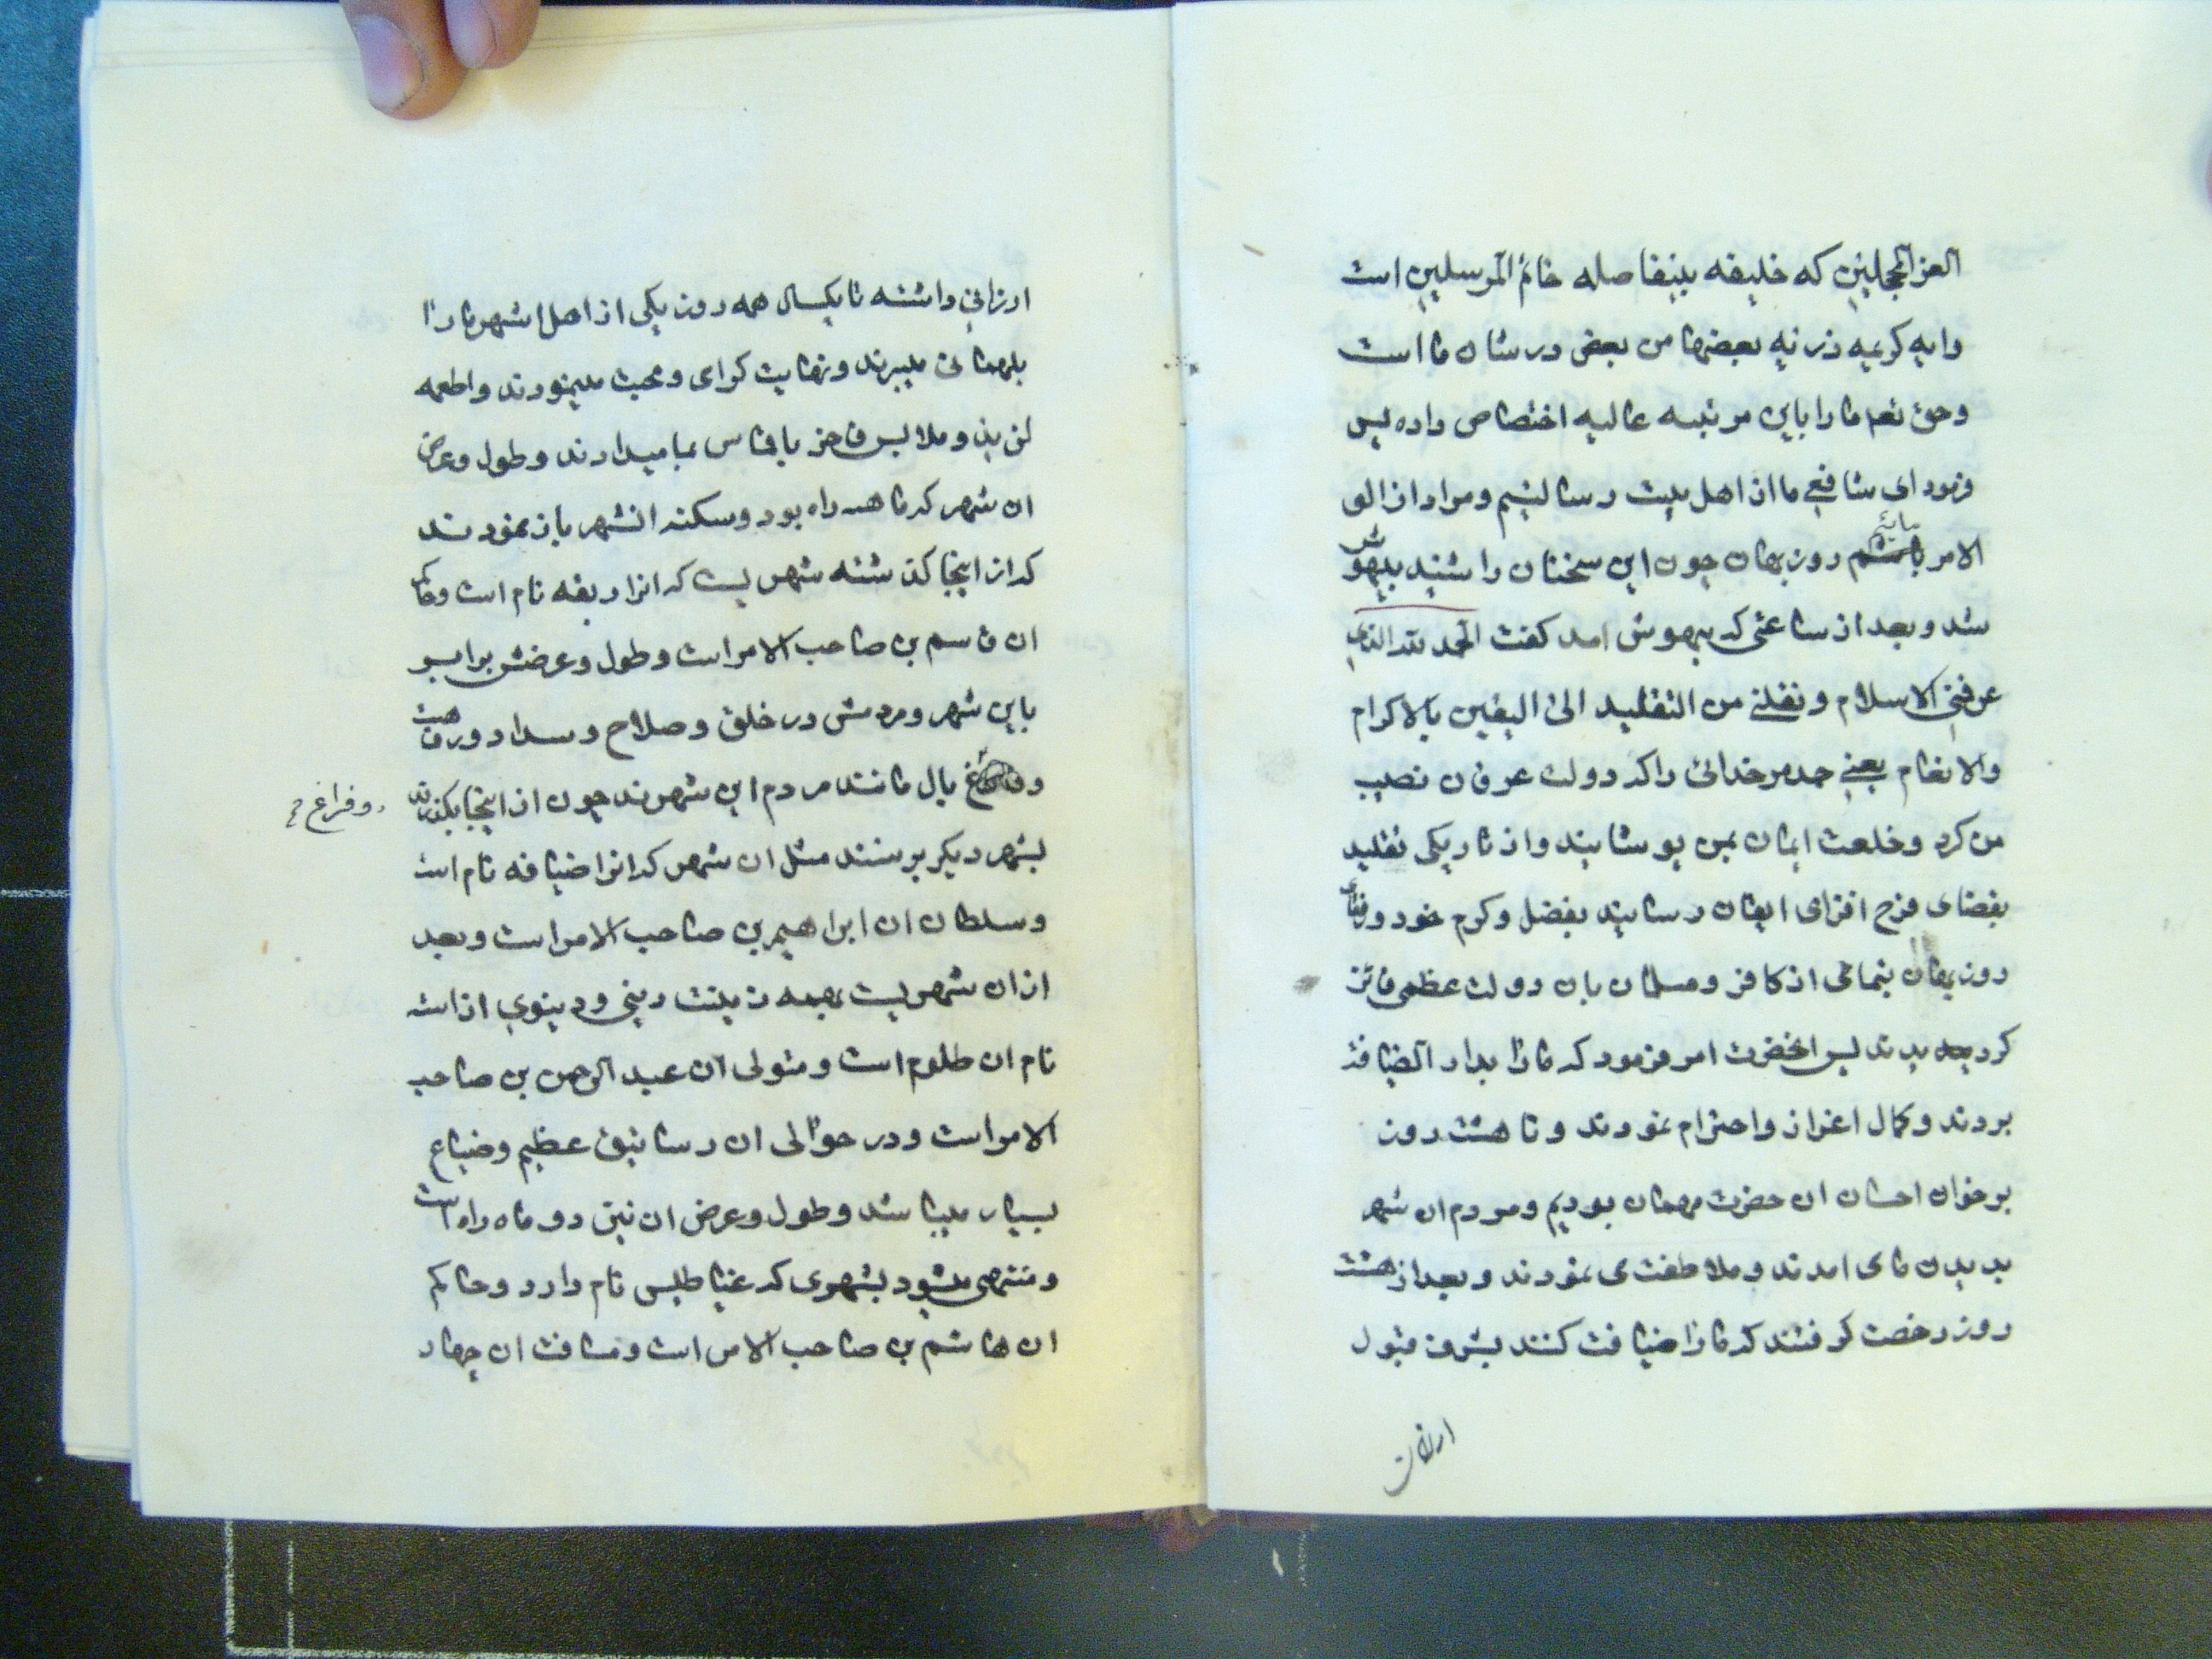 الغر المحجلین که خلیفه بینفاصله خاتم المرسلین است
وایه کریمه ذریه بعضها من بعض در شان ما است
وحق تعم ما را باین مرتبه عالیه اختصاص داده پس
فرمود ای شافعی ما از اهل بیت رسالتیم ومراد از الو
الامر مائیم روزبهان چون این سخنان را شنید بیهوش
شد وبعد از ساعتی که بهوش امد کفت الحمد لله الذی
عرفنی الاسلام ونقلنی من التقلید الی الیقین بالاکرام
والانعام یعنی حمد مر خدائی را که دولت عرفان نصیب
من کرد وخلعت ایمان بمن پوشانید واز تاریکی تقلید
بفضای فرح افزای ایقان رسانید بفضل وکرم خود ورفقای
روزبهان بتمامی از کافر ومسلمان بان دولت عظمی فائز
کردیدند پس انحضرت امر فرمود که ما را بدار الضیافة
بردند وکمال اعزاز واحترام نمودند وتا هشت روز
بر خوان احسان ان حضرت مهمان بودیم ومردم ان شهر
بدیدن مای امدند وملاطفت ی نمودند وبعد از هشت
روز رخصت کرفتند که ما را ضیافت کنند بشرف قبول
ارزانی
ارزانی داشته تا یکسال همه روز یکی از اهل شهر ما را
بمهمانی میبرند ونهایت کرامی ومحبت مینمودند واطعمه
لذیذ وملابس فاخر یا قماس بما میدادند وطول وعرض
ان شهر که ماهه راه بود وسکنه انشهر باز نمودند
که از اینجا کذشته شهریست که انرا ریقه نام است وحاکم
ان قاسم بن صاحب الامر است وطول وعرضش برابر
باین شهر ومردمش در خلق وصلاح وسداد ورفاهت
وفراغ بال مانند مردم این شهرند چون از اینجا بکذرند
وفراغ
بشهر دیکر برسند مثل ان شهر که انرا ضیافه نام است
وسلطان ان ابراهیم بن صاحب الامر است وبعد
از ان شهریست بهمه زینت دینی ودینوی اراسته
نام ان طلوم است ومتولی ان عبد الرحمن بن صاحب
الامر است ودر حوالی ان رساتیق عظیم وضیاع
بسیار میباشد وطول وعرض ان نیز دو ماه راه است
ومنتهی میشود بشهری که عنیاطلیس نام دارد وحاکم
ان هاشم بن صاحب الامر است ومسافت ان چهار